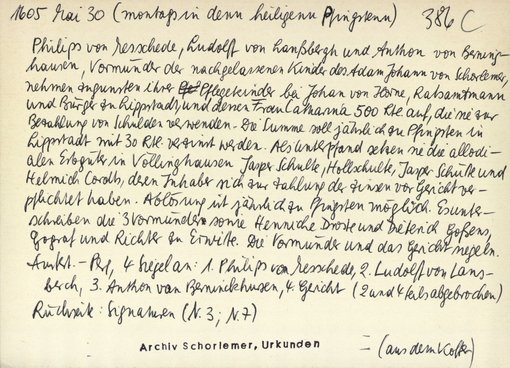 1605 Mai 30 (montags in denn heiligenn Pfingstenn) 386 C
Philips von Messchede, Ludolff von Lanßbergh und Anthon von Berning-
hausen, Vormünder der nachgelassenen Kinder des Adam Johann von Schorlemer,
nehmen zugunsten ihrer Pflegekinder bei Johan von Horne, Ratsamtmann
und Bürger zu Lippstadt, und dessen Frau Catharina 500 Rtl. auf, die sie zur
Bezahlung von Schulden verwenden. Die Summe soll jährlich zu Pfingsten in
Lippstadt mit 30 Rtl. verzinst werden. Als Unterpfand setzen sie die allodi-
alen Erbgüter in Völlinghausen Jasper Schulte, Hollschulte, Jasper Schütte und
Helmich Cordts, deren Inhaber sich zur Zahlung der Zinsen vor Gericht ver-
pflichtet haben. Ablösung ist jährlich zu Pfingsten möglich. Es unter-
schreiben die 3 Vormünder sowie Henrich Droste und Dieterich Goßens,
Gograf und Richter zu Erwitte. Die Vormünder und das Gericht siegeln.
Ausf. - Pgt, 4 Siegel an: 1. Philips von Messchede, 2. Ludolff von Lans-
berch, 3. Anthon van Berninckhusen, 4. Gericht (2 und 4 teils abgebrochen)
Rückseite: Signaturen (N. 3; N. 7)
Archiv Schorlemer, Urkunden
- (aus dem Koffer)